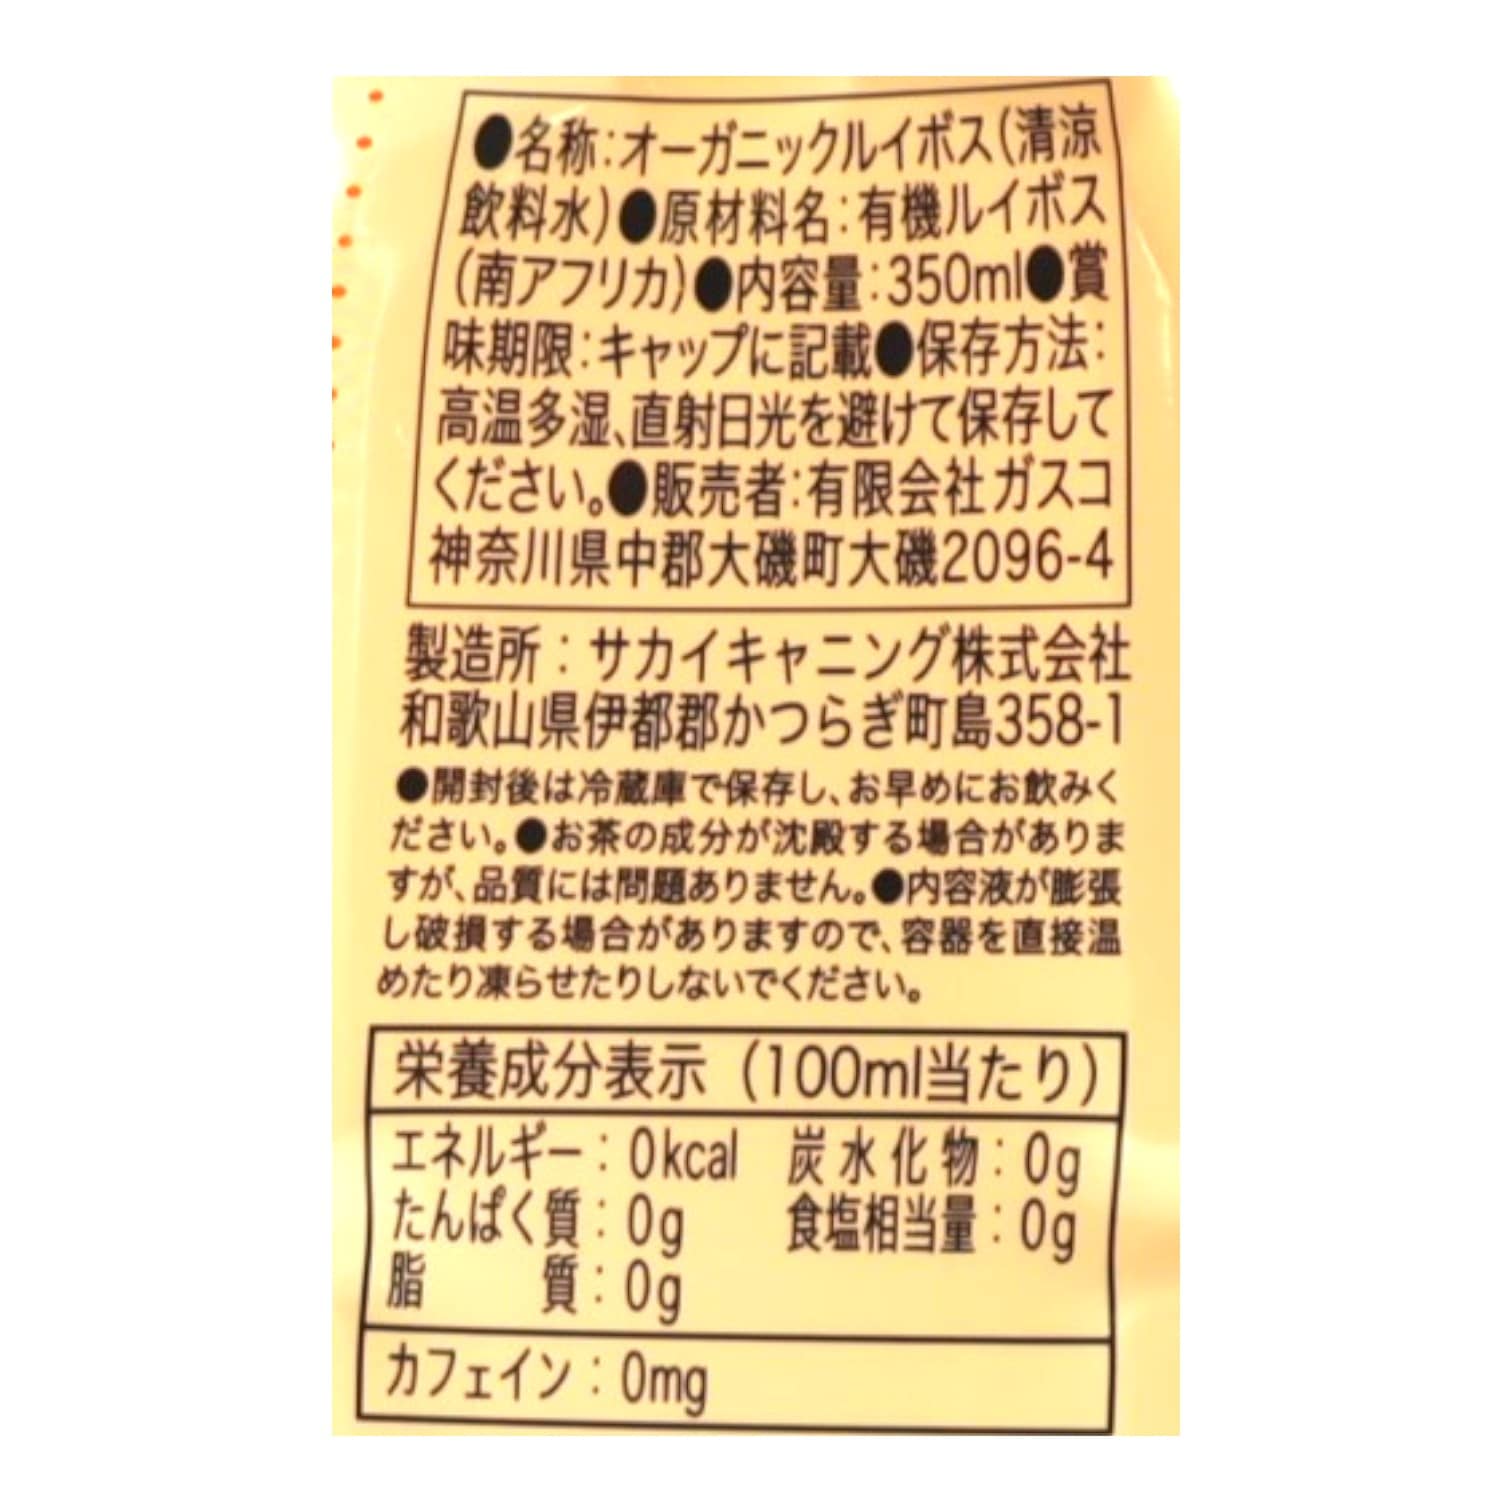 ●名称:オーガニックルイボス(清涼
飲料水)●原材料名:有機ルイボス
(南アフリカ)●内容量:350ml●賞
味期限:キャップに記載●保存方法:
高温多湿、直射日光を避けて保存して
ください。●販売者:有限会社ガスコ
神奈川県中郡大磯町大磯2096-4
製造所:サカイキャニング株式会社
和歌山県伊都郡かつらぎ町島358-1
●開封後は冷蔵庫で保存し、お早めにお飲みく
ださい。●お茶の成分が沈殿する場合がありま
すが、品質には問題ありません。●内容液が膨張
し破損する場合がありますので、容器を直接温
めたり凍らせたりしないでください。
栄養成分表示(100ml当たり)
エネルギー:0kcal 炭水化物:0g
たんぱく質:0g 食塩相当量:0g
脂質:0g
カフェイン:0mg